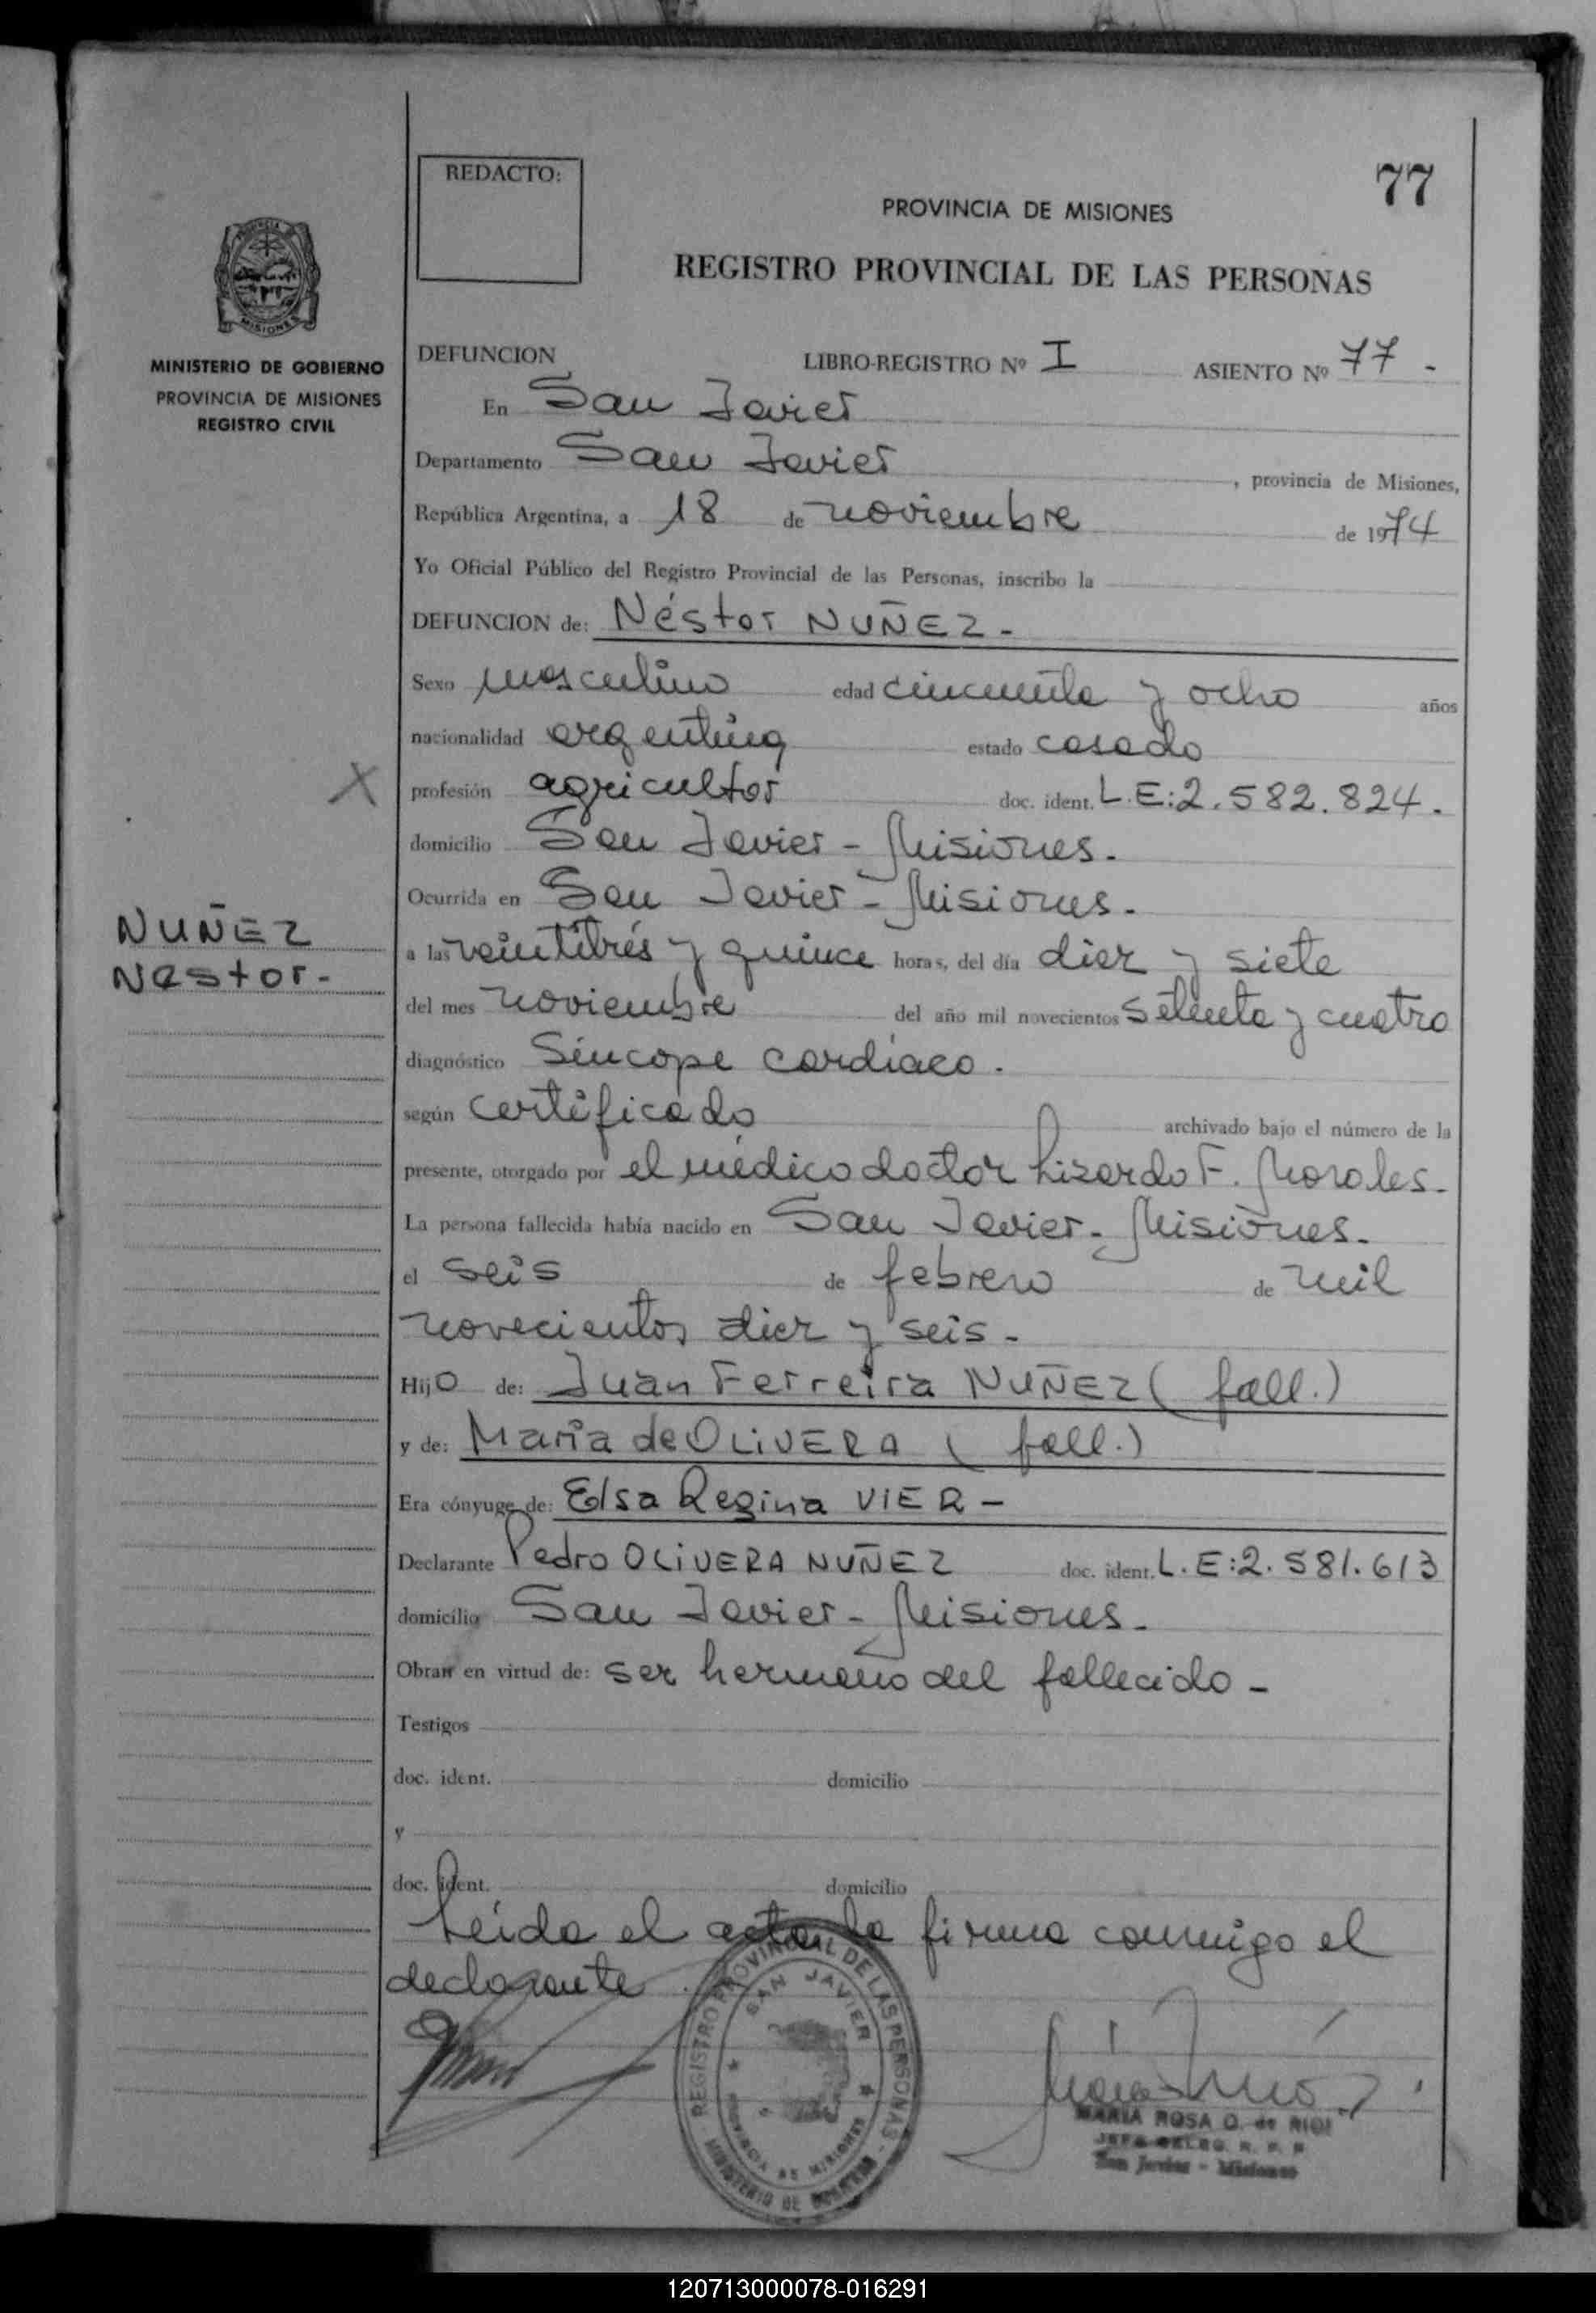 REDACTO:
77
PROVINCIA DE MISIONES
REGISTRO PROVINCIAL DE LAS PERSONAS
MISIONES
MINISTERIO DE GOBIERNO
PROVINCIA DE MISIONES
REGISTRO CIVIL
DEFUNCION LIBRO-REGISTRO Nº I ASIENTO Nº 77 -
En San Javier
Departamento San Javier, provincia de Misiones,
República Argentina, a 18 de noviembre de 1974
Yo Oficial Público del Registro Provincial de las Personas, inscribo la
DEFUNCION de: Néstor NUÑEZ -
Sexo masculino edad cincuenta y ocho años
nacionalidad argentina estado casado
X
profesión agricultor doc. ident. L.E:2.582.824.
domicilio San Javier - Misiones.
Ocurrida en San Javier - Misiones.
NUÑEZ
Nestor-
a las veintitrés y quince horas, del día diez y siete
del mes noviembre del año mil novecientos setenta y cuatro
diagnóstico Síncope cardíaco.
según certificado archivado bajo el número de la
presente, otorgado por el médico doctor Lizardo F. Morales-
La persona fallecida había nacido en San Javier - Misiones-
el seis de febrero de mil
novecientos diez y seis -
Hijo de: Juan Ferreira NUÑEZ ( fall.)
y de: María de OLIVERA ( fall.)
Era cónyuge de: Elsa Regina VIER -
Declarante Pedro OLIVERA NUÑEZ doc. ident. L.E:2.581.613
domicilio San Javier - Misiones-
Obran en virtud de: ser hermano del fallecido -
Testigos
doc. ident. domicilio
y
doc. ident. domicilio
Leída el acta la firma conmigo el
declarante.
REGISTRO PROVINCIAL DE LAS PERSONAS
SAN JAVIER
PROVINCIA DE MISIONES
MINISTERIO DE GOBIERNO
MARIA ROSA O. de
San Javier - Misiones
120713000078-016291